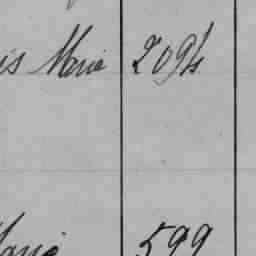 is Marie 2094
Marie 599